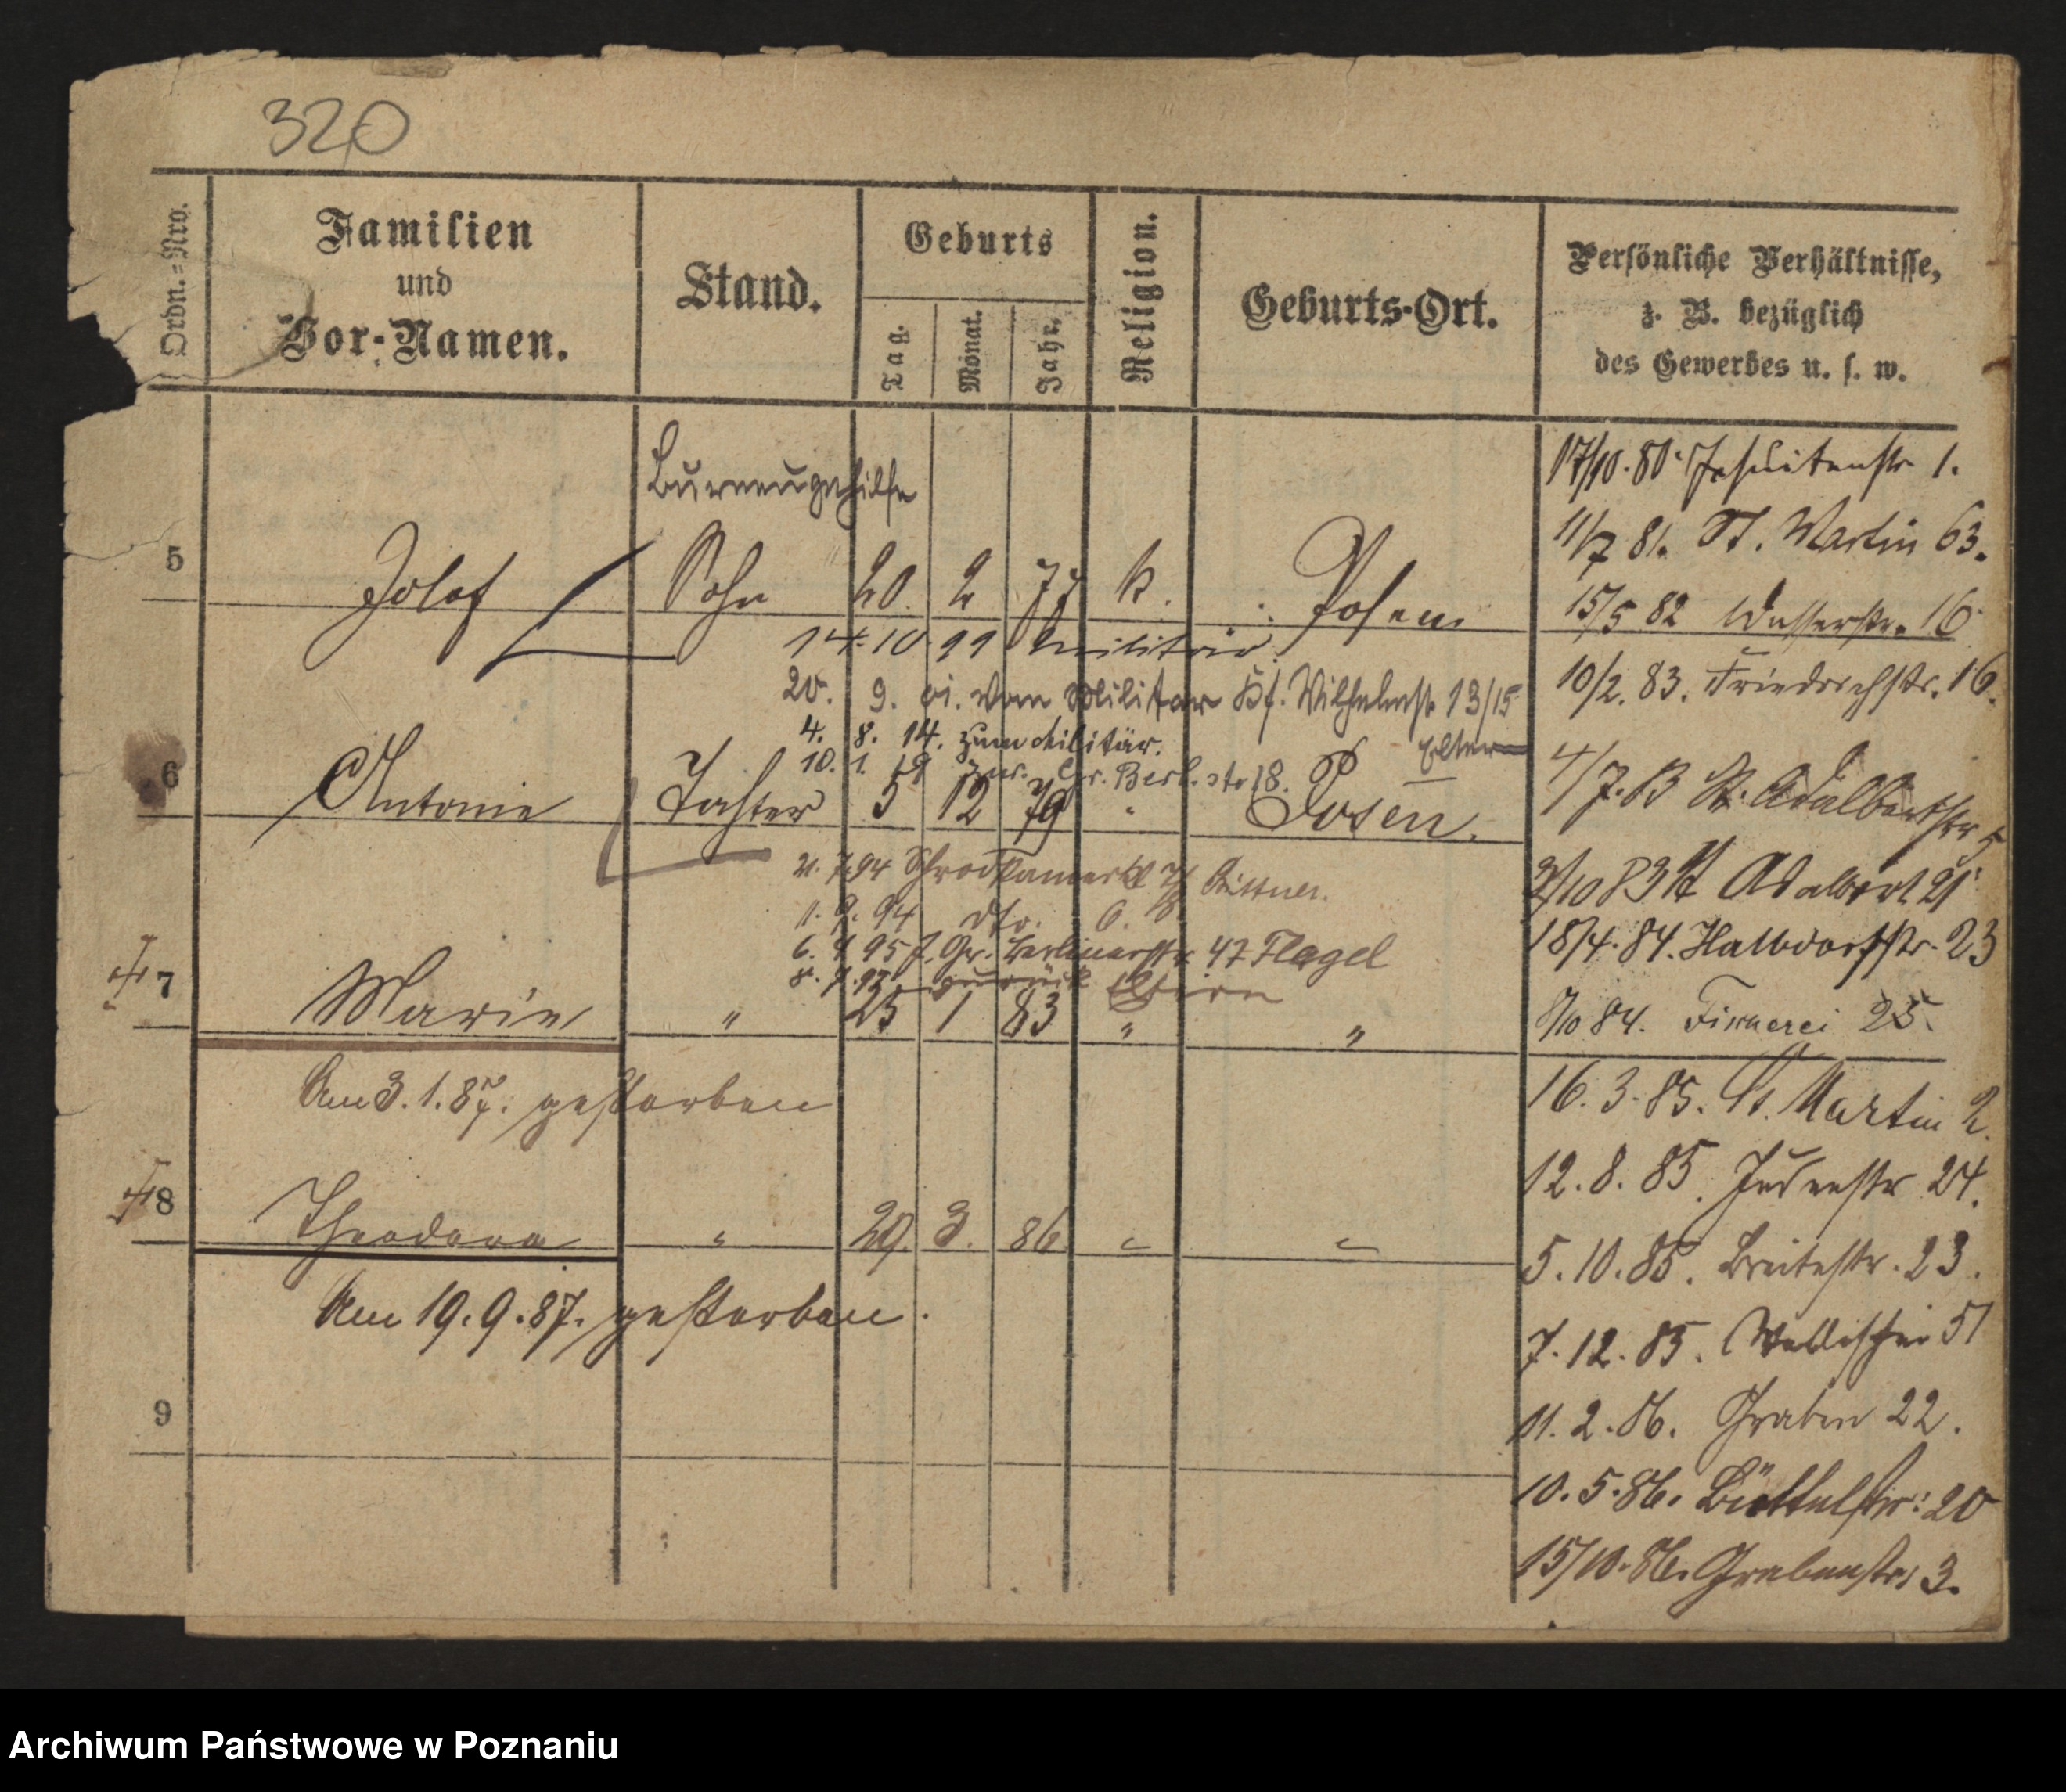 320
Ordn.=Nro.
Familien
und
Vor-Namen.
Stand.
Geburts
Tag.
Monat.
Jahr.
Religion.
Geburts-Ort.
Persönliche Verhältnisse,
z. B. bezüglich
des Gewerbes u. s. w.
Bureaugehilfe
5 Josef Sohn 20. 2 77 k. Posen
14. 10. 99 Militär.
20. 9. 01. vom Militär Wilhelmstr 13/15
Eltern
4. 8. 14. zum Militär.
10. 1. 19 zur. Gr. Berl. str 18.
6 Antonie Tochter 5 12 79 " Posen.
21. 7. 94 Schrodkamarkt 7 Büttner.
1. 9. 94 dto. 6.
6. 4 95 f. Gr. Berlinerstr. 47 Flagel
8. 7. 97 zurück Eltern
7 Marie " 25 1 83 " "
Am 3. 1. 87. gestorben
8 Theodora " 29. 3. 86 " "
Am 19. 9. 87. gestorben.
9
17/10. 80. Jesuitenstr 1.
11/7 81. St. Martin 63.
15/5 82 Wasserstr. 16
10/2. 83. Friedrichstr. 16.
4/7. 83 St. Adalbertstr 5
2/10 83 St Adalbert 21
18/4. 84. Halbdorfstr. 23
8/10 84. Fischerei 25.
16. 3. 85. St. Martin 2.
12. 8. 85. Judenstr 24.
5. 10. 85. Breitestr. 23.
7. 12. 85. Wallischei 51
11. 2. 86. Graben 22.
10. 5. 86. Büttelstr: 20
15/10. 86. Grabenstr. 3.
Archiwum Państwowe w Poznaniu